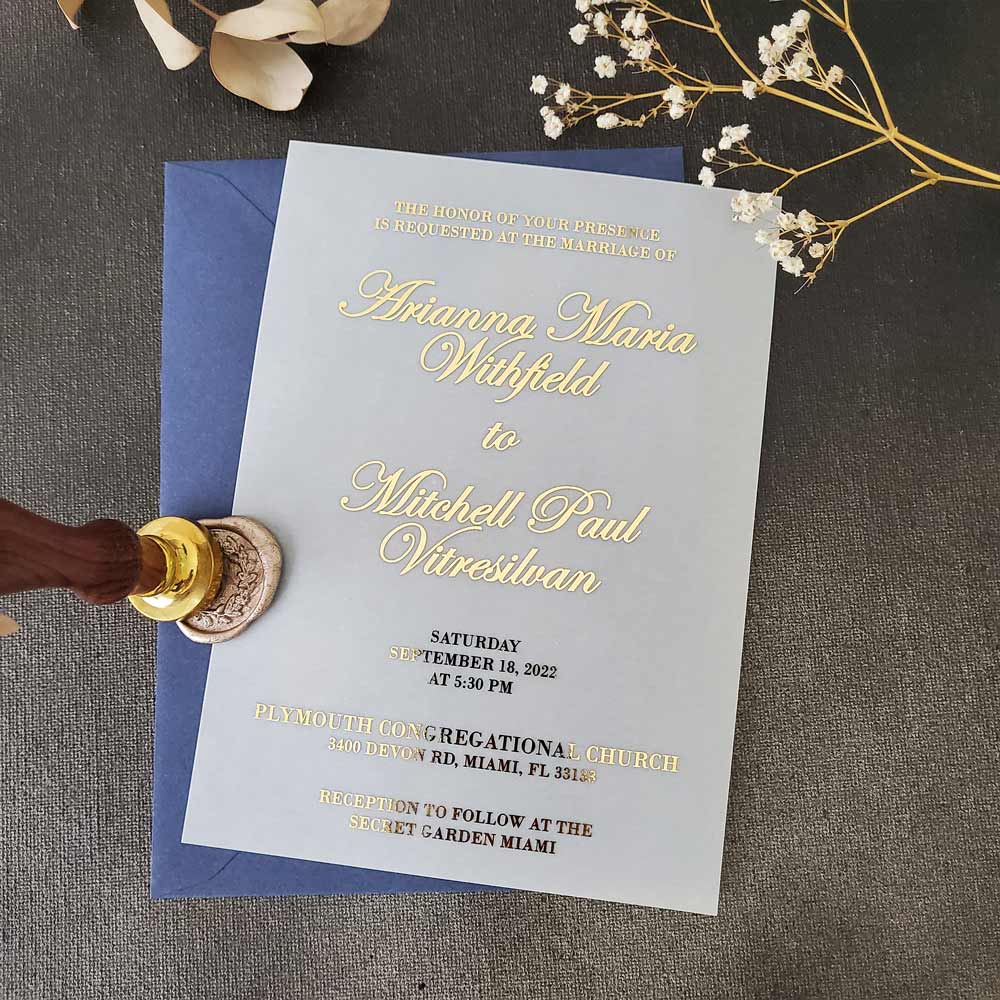 THE HONOR OF YOUR PRESENCE
IS REQUESTED AT THE MARRIAGE OF
Arianna Maria
Withfield
to
Mitchell Paul
Vitresilvan
SATURDAY
SEPTEMBER 18, 2022
AT 5:30 PM
PLYMOUTH CONGREGATIONAL CHURCH
3400 DEVON RD, MIAMI, FL 33133
RECEPTION TO FOLLOW AT THE
SECRET GARDEN MIAMI